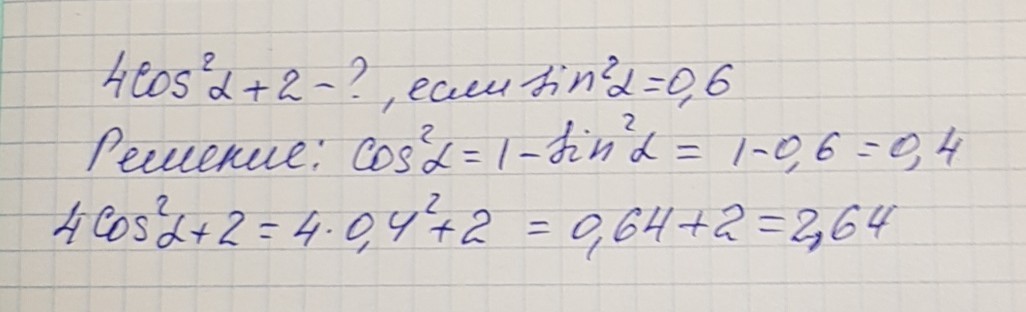 4cos²α+2-?, если sin²α=0,6
Решение: cos²α=1-sin²α=1-0,6=0,4
4cos²α+2=4·0,4²+2=0,64+2=2,64